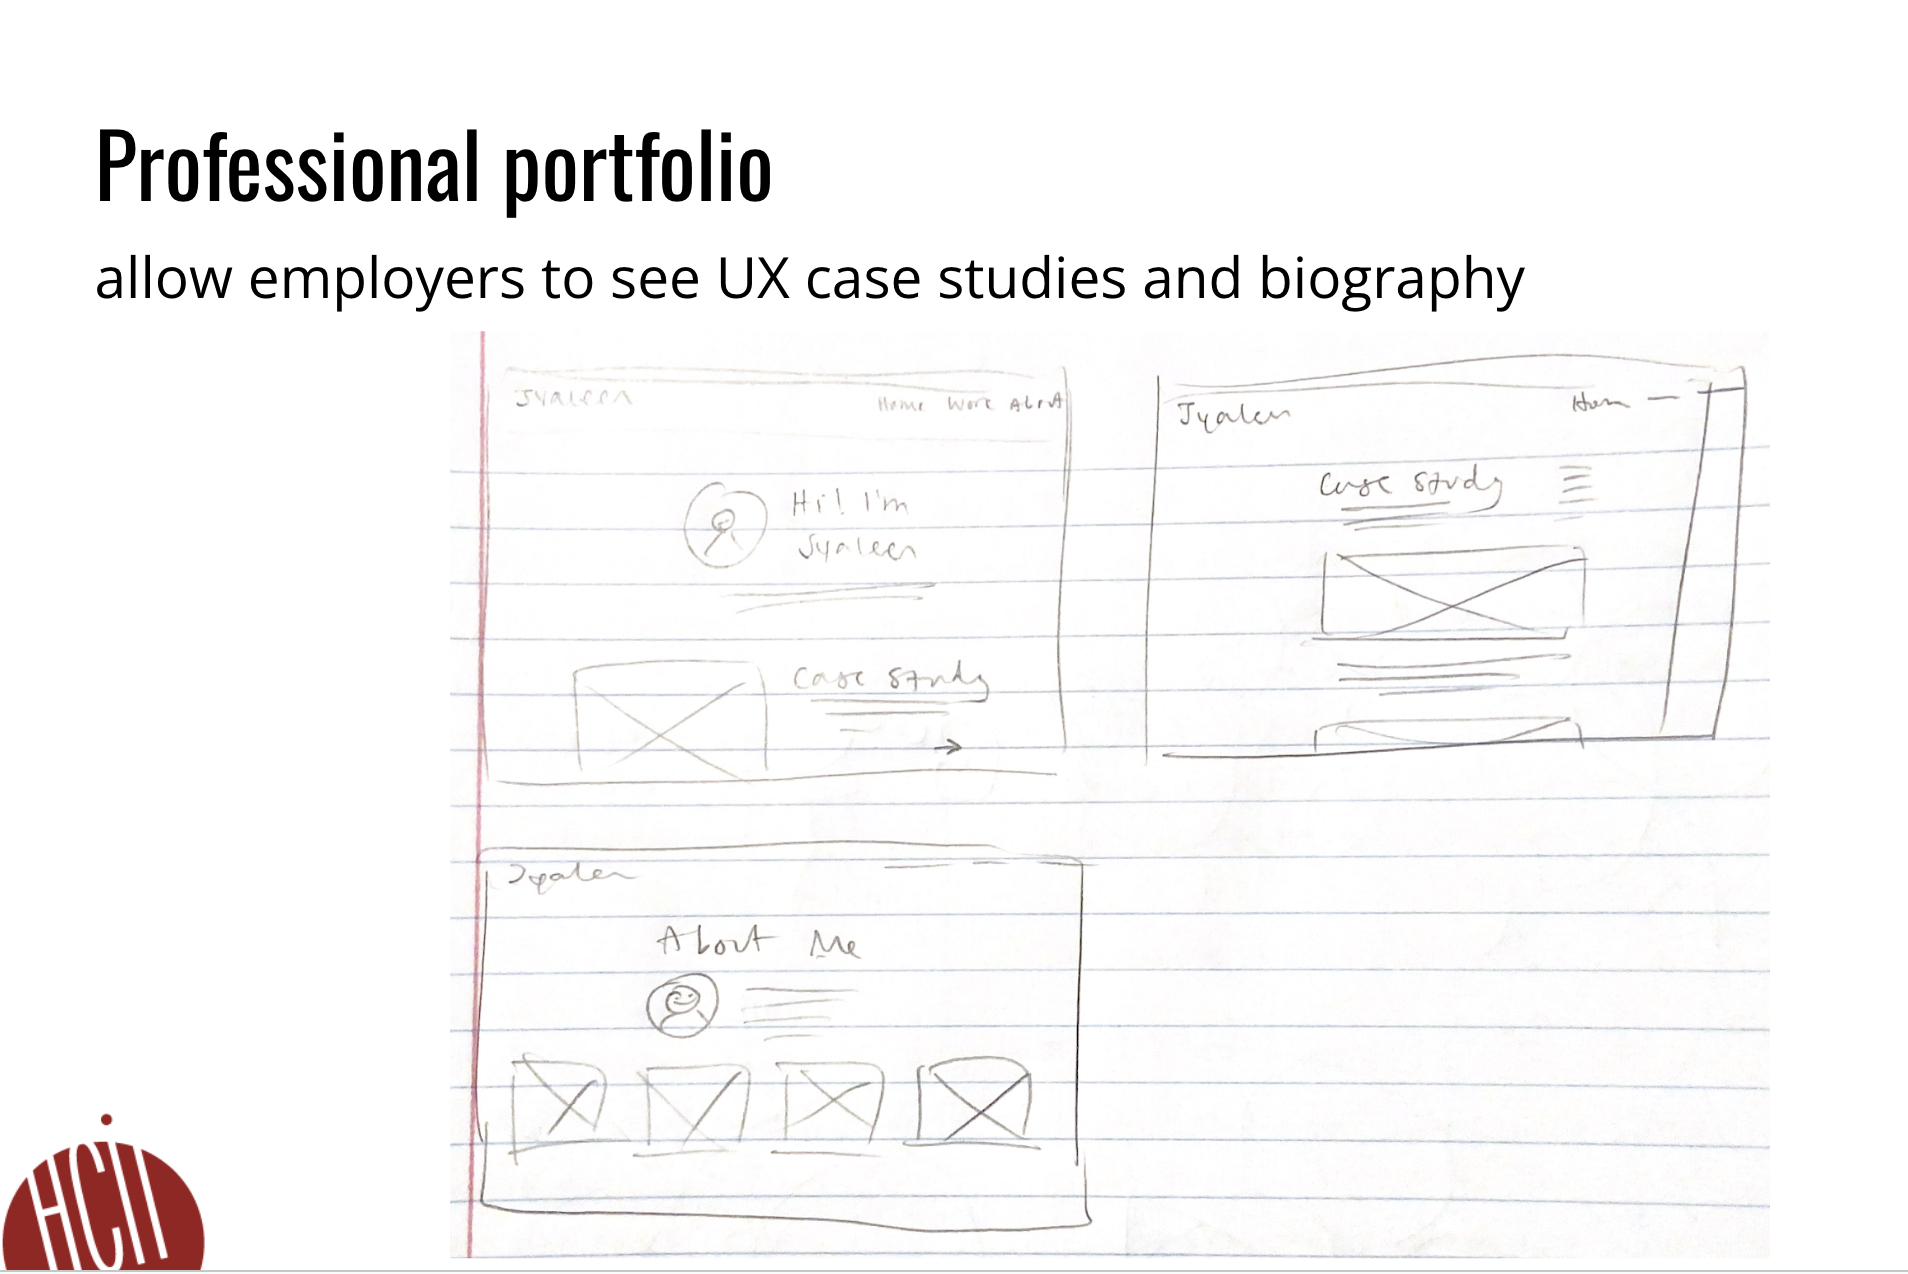 Professional portfolio
allow employers to see UX case studies and biography
Jyaleen
Home Work About
Hi! I'm
Jyaleen
Case Study
Jyalen
Hom
Case Study
Jyalen
About Me
HCII